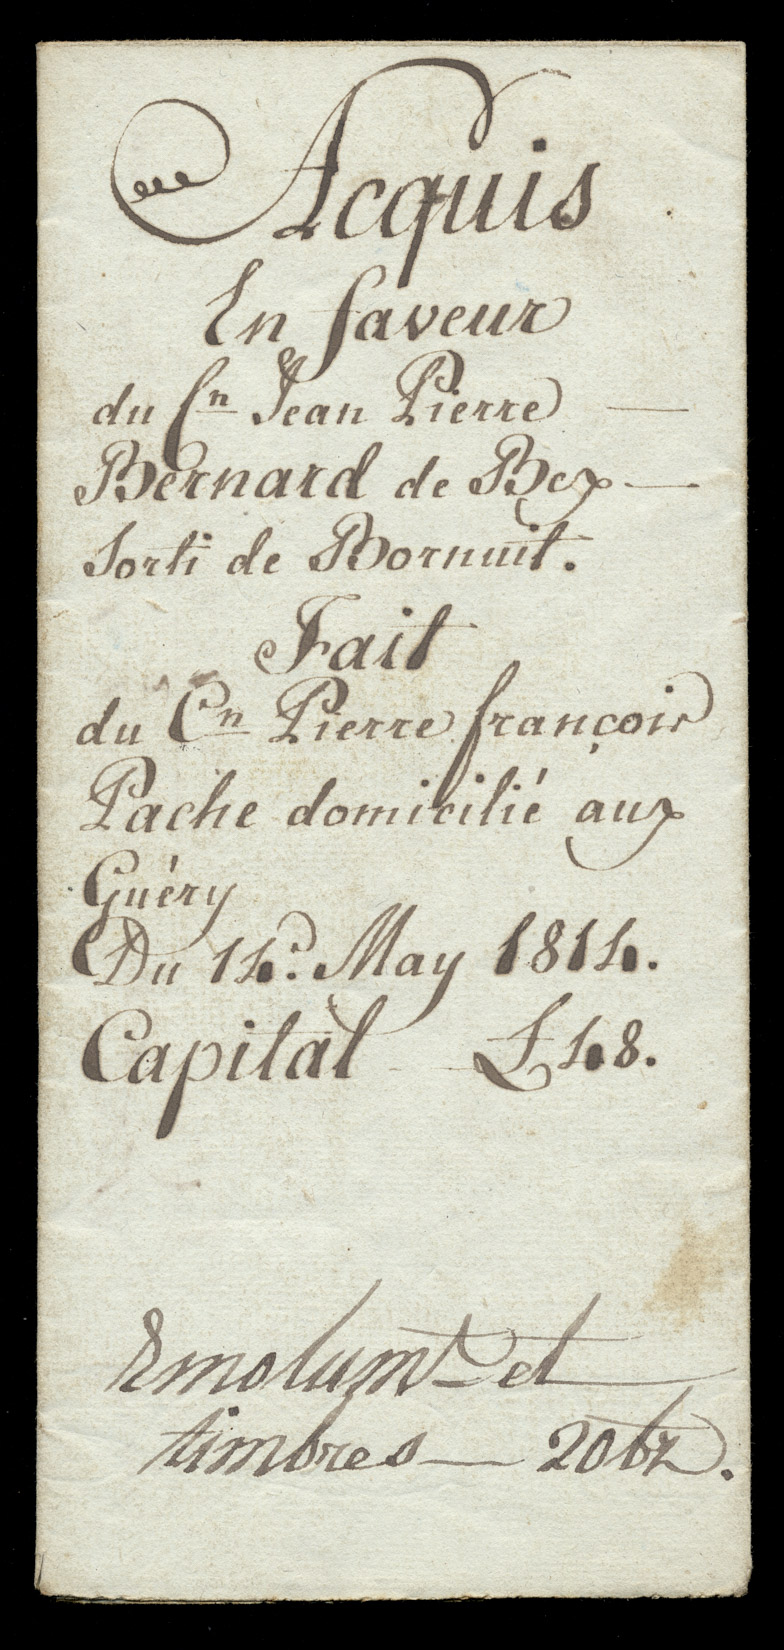 Acquis
En faveur
du Cn Jean Pierre —
Bernard de Bex —
Sorti de Bornuit.
Fait
du Cn Pierre françois
Pache domicilié aux
Guéry
Du 14e. May 1814.
Capital £ 48.
Emolumt et
timbres — 20 bz.